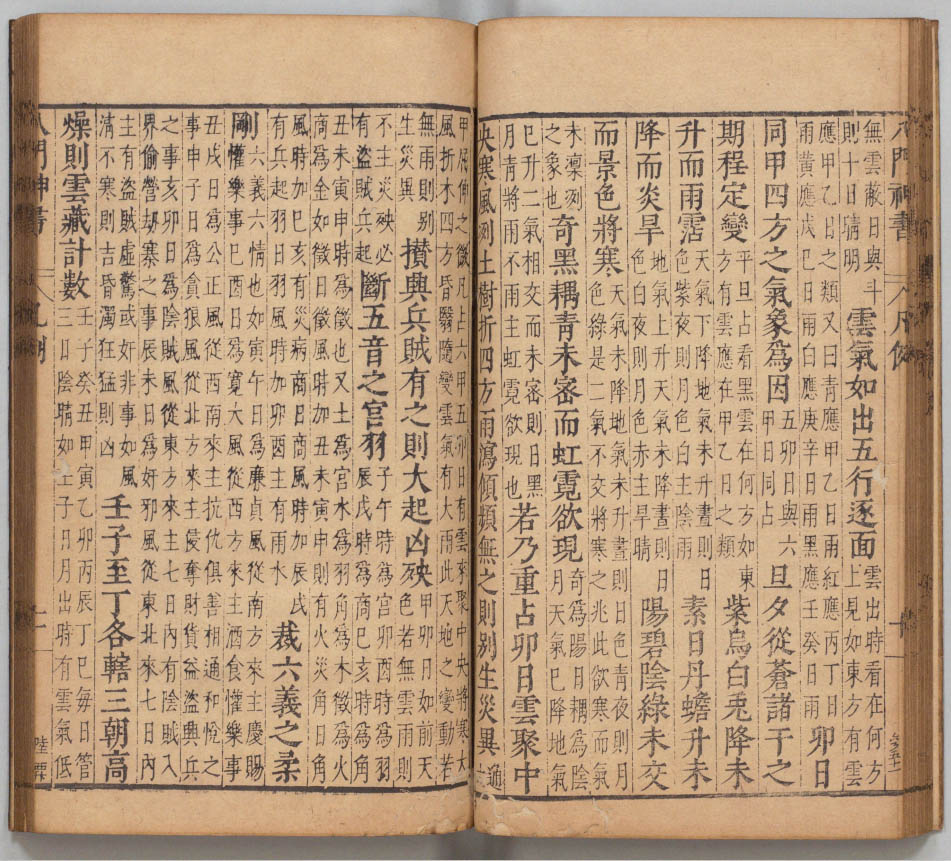 無雲蔽日與斗
則十日晴明
雲氣如出五行逐面
雲出時看在何方
上見如東方有雲
應甲乙日之類又曰青應甲乙日雨紅應丙丁日
雨黃應戊巳日雨白應庚辛日雨黑應壬癸日雨
卯日
同甲四方之氣象爲因
五卯日與六
甲日同占
旦夕從蒼諸干之
期程定變
平旦占看黑雲在何方如東
方有雲應在甲乙日之類
紫烏白兎降未
升而雨霑
天氣下降地氣未升晝則日
色紫夜則月色白主陰雨
素日丹蟾升未
降而炎旱
地氣上升天氣未降晝則日
色白夜則月色赤主旱晴
陽碧陰綠未交
而景色將寒
天氣未降地氣未升晝則日色青夜則月
色綠是二氣不交將寒之兆此欲寒而氣
未凜冽
之象也
奇黑耦青未密而虹霓欲現
奇爲陽日耦爲陰
月天氣巳降地氣
巳升二氣相交而未密則日黑
月青將雨不雨主虹霓欲現也
若乃重占卯日雲聚中
央寒風冽土對折四方雨瀉傾頹無之則別生災異
甲屈伸之徵凡占六甲五卯日有雲來聚中央將寒大
風折木四方昏翳隨變雲氣有大雨此天地之變動若
無雨則別
生災異
攢與兵賊有之則大起凶殃
甲卯日如前天
色若無雲雨則
不主災殃必
有盜賊兵起
斷五音之宮羽
子午時爲宮卯酉時爲羽
辰戌時爲商巳亥時爲角
丑未寅申時爲徵也又土爲宮水爲羽角爲木徵爲火
商爲金如徵日徵風時加丑未寅申則有火災角日角
風時加巳亥有災病商日商風時加辰戌
有兵起羽日羽風時加卯酉主有雨水
裁六義之柔
剛
六義六情也如寅午日爲廉貞風從南方來主慶賜
懽樂事巳酉日爲寬大風從西方來主酒食懽樂事
丑戌日爲公正風從西南來主抗仇俱善相通和悅之
事申子日爲貪狼風從北方來主奪財貨益盜興兵
之事亥卯日爲陰賊風從東方來主七日內有陰賊入
界偷營刼寨之事辰未日爲奸邪風從東北來七日內
主有盜賊虛驚或奸非事如風
清不寒則吉昏濁狂猛則凶
壬子至丁各轄三朝高
燥則雲藏計數
壬子癸丑甲寅乙卯丙辰丁巳每日管
三日陰晴如壬子日月出時有雲氣低